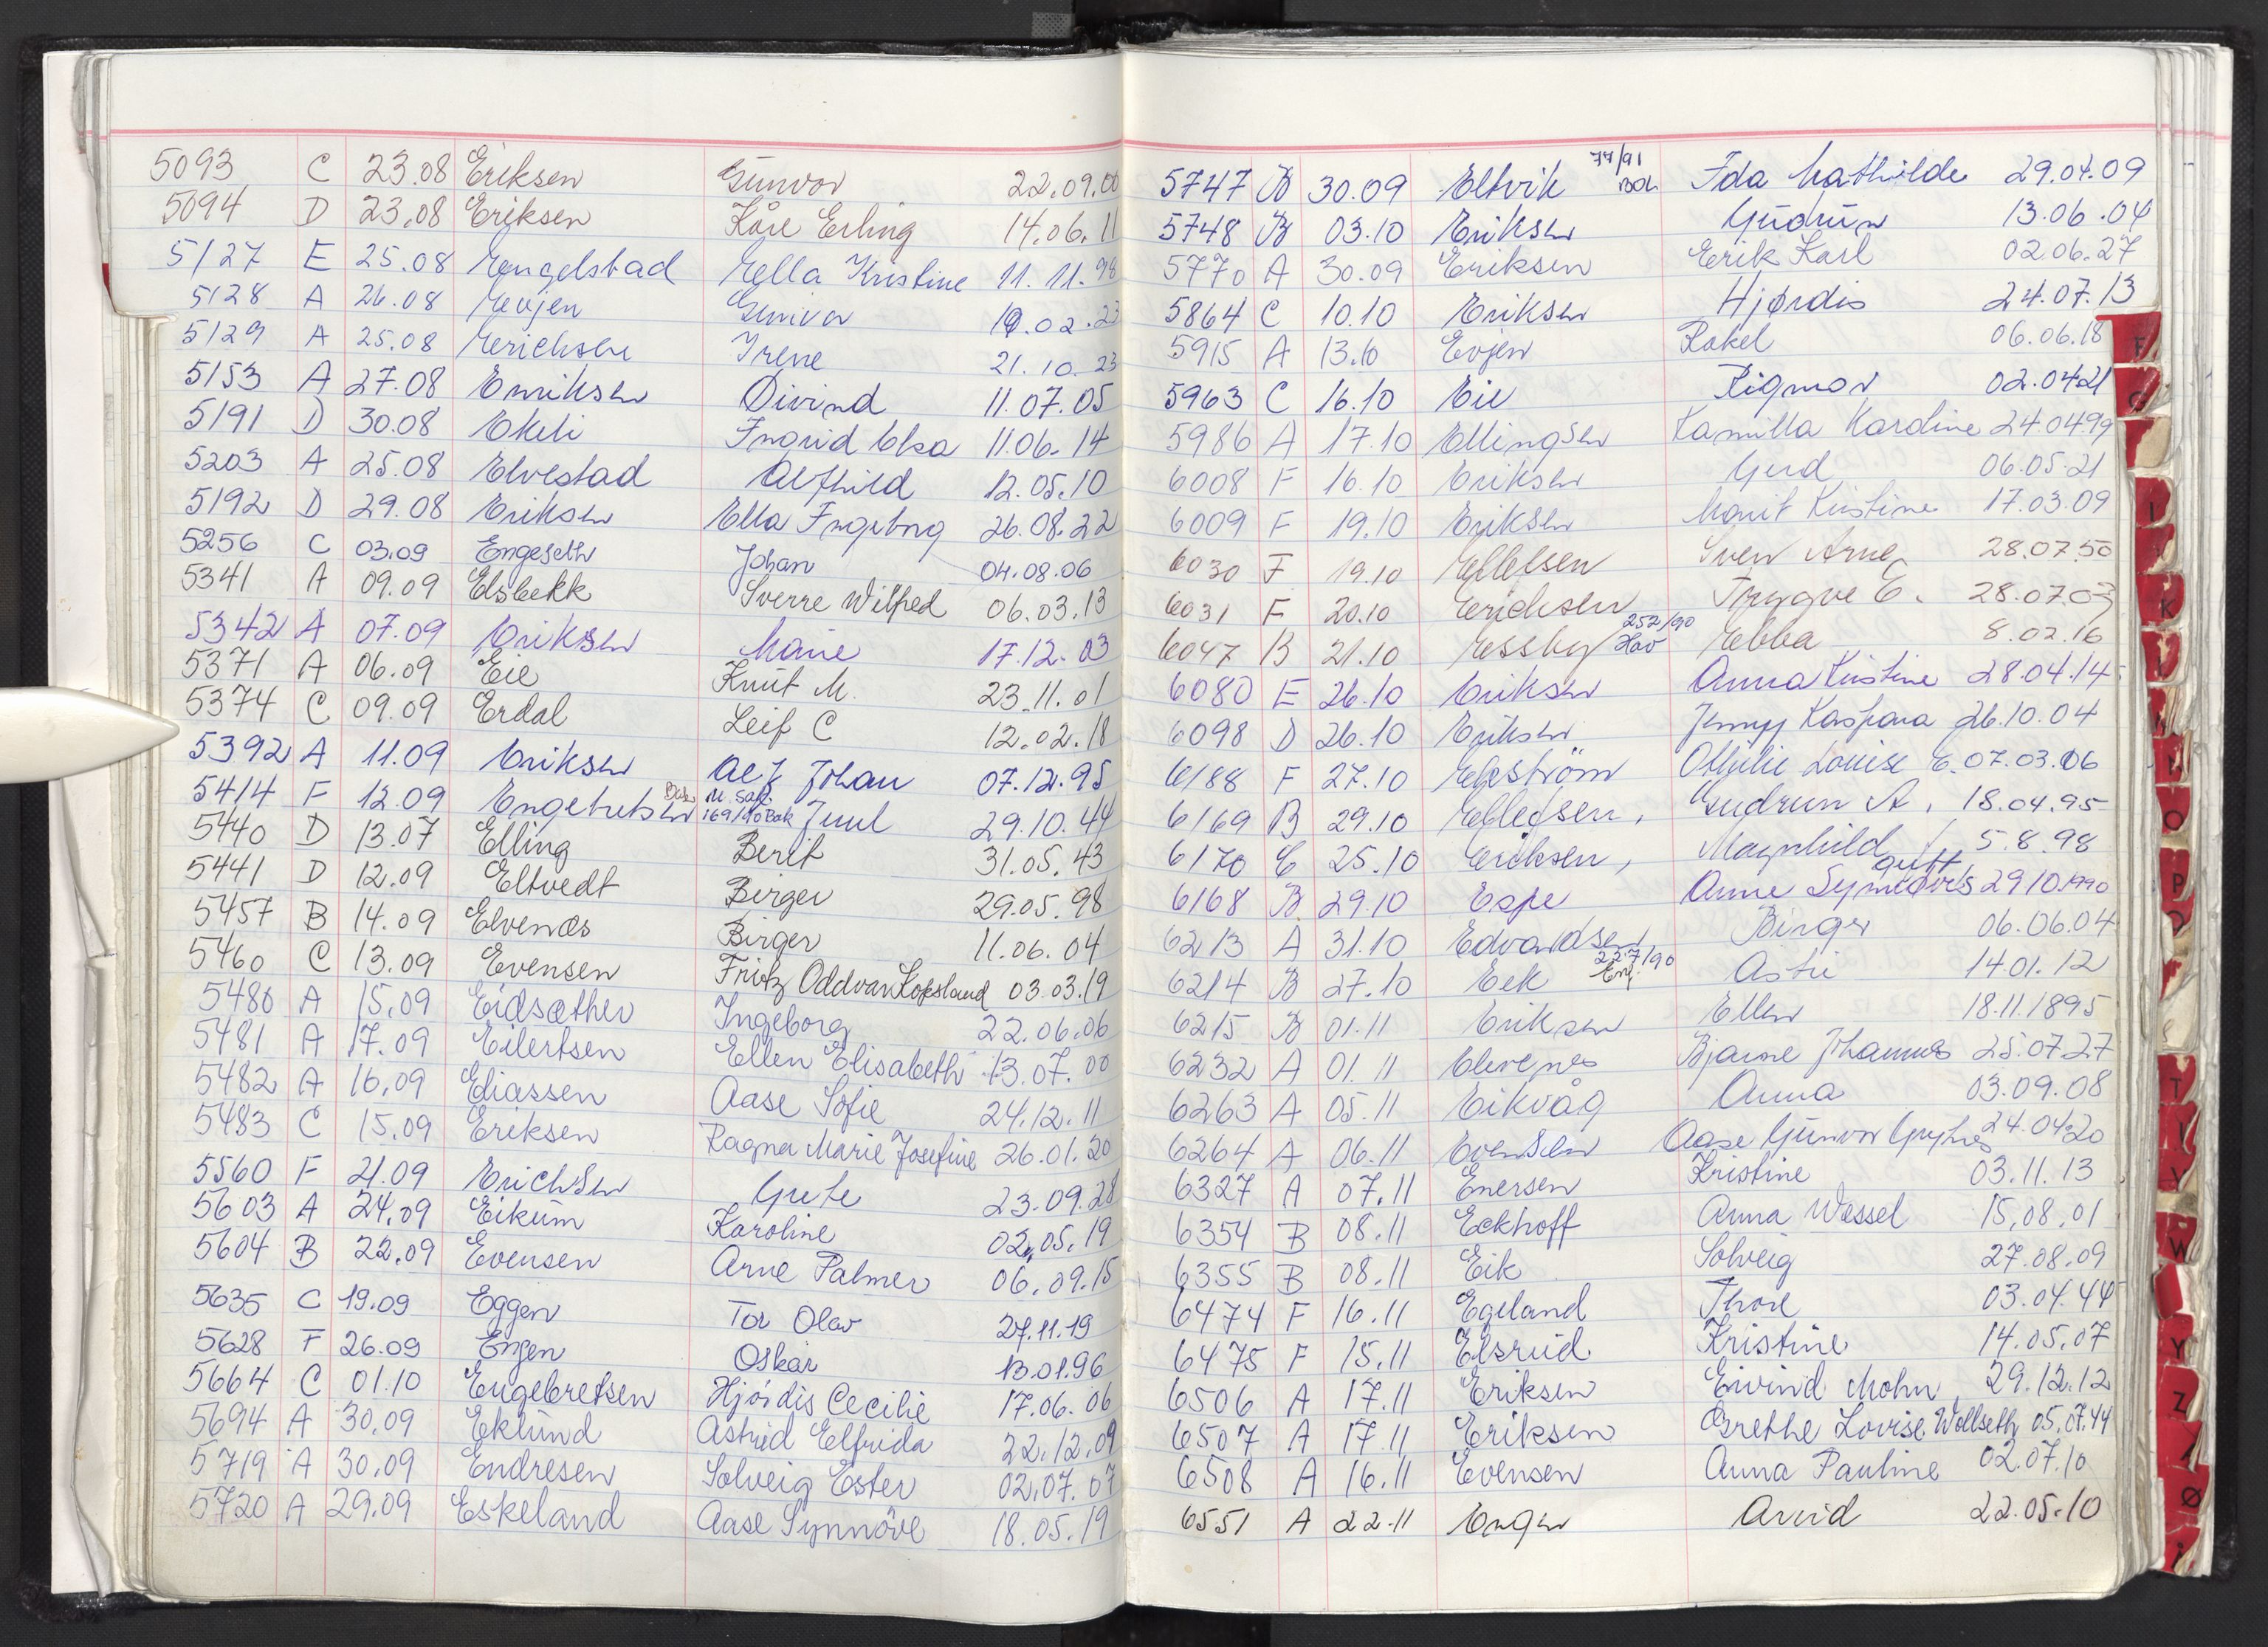 5093 C 23.08 Eriksen Gunvor 22.09.00
5094 D 23.08 Eriksen Kåre Erling 14.06.11
5127 E 25.08 Engelstad Ella Kristine 11.11.98
5128 A 26.08 Evjen Gunvor 19.02.23
5129 A 25.08 Erichsen Irene 21.10.23
5153 A 27.08 Enriksen Øivind 11.07.05
5191 D 30.08 Ekeli Ingrid Elsa 11.06.14
5203 A 25.08 Elvestad Alfhild 12.05.10
5192 D 29.08 Eriksen Ella Ingeborg 26.08.22
5256 C 03.09 Engeseth Johan 04.08.06
5341 A 09.09 Elsbekk Sverre Wilfred 06.03.13
5342 A 07.09 Eriksen Marie 17.12.03
5371 A 06.09 Eie Knut M. 23.11.01
5374 C 09.09 Erdal Leif C 12.02.18
5392 A 11.09 Eriksen Alf Johan 07.12.95
5414 F 12.09 Engebretsen 169/90 Bak Juul 29.10.44
5440 D 13.07 Elling Berit 31.05.43
5441 D 12.09 Eltvedt Birger 29.05.98
5457 B 14.09 Elvenæs Birger 11.06.04
5460 C 13.09 Evensen Fritz Oddvar Kopsland 03.03.19
5480 A 15.09 Eidsæther Ingeborg 22.06.06
5481 A 17.09 Eilertsen Ellen Elisabeth 13.07.00
5482 A 16.09 Eliassen Aase Sofie 24.12.11
5483 C 15.09 Eriksen Ragna Marie Josefine 26.01.20
5560 F 21.09 Erichsen Grete 23.09.28
5603 A 24.09 Eikum Karoline 02.05.19
5604 B 22.09 Evensen Arne Palmer 06.09.15
5635 C 19.09 Eggen Tor Olav 27.11.19
5628 F 26.09 Engen Oskar 13.01.96
5664 C 01.10 Engebretsen Hjørdis Cecilie 17.06.06
5694 A 30.09 Eklund Astrid Elfrida 22.12.09
5719 A 30.09 Endresen Solveig Ester 02.07.07
5720 A 29.09 Eskeland Aase Synnöve 18.05.19
5747 B 30.09 Eltvik 77/91 Bak Ida Mathilde 29.04.09
5748 B 03.10 Eriksen Gudrun 13.06.04
5770 A 30.09 Eriksen Erik Karl 02.06.27
5864 C 10.10 Eriksen Hjørdis 24.07.13
5915 A 13.10 Evjen Rakel 06.06.18
5963 C 16.10 Eie Rigmor 02.0421
5986 A 17.10 Ellingsen Kamilla Karoline 24.0499
6008 F 16.10 Eriksen Gerd 06.05.21
6009 F 19.10 Eriksen Marit Kristine 17.03.09
6030 F 19.10 Ellefsen Sven Arne 28.07.50
6031 F 20.10 Erichsen Trygve E. 28.07.03
6047 B 21.10 Essby 252/90 Hov Ebba 8.02.16
6080 E 26.10 Eriksen Anna Kristine 28.04.14
6098 D 26.10 Eriksen Jenny Kaspara 26.10.04
6188 F 27.10 Ekström Ottilie Louise E. 07.03.06
6169 B 29.10 Ellefsen, Gudrun A. 18.04.95
6170 C 25.10 Eriksen, Magnhild 5.8.98
6168 B 29.10 Espe Anne gift 29101990
6213 A 31.10 Edvardsen Birger 06.06.04
6214 B 27.10 Eek 227/90 Eng. Astri 14.01.12
6215 B 01.11 Eriksen Ellen 18.11.1895
6232 A 01.11 Elvenes Bjarne Johannes 25.07.27
6263 A 05.11 Eikvåg Anna 03.09.08
6264 A 06.11 Evensen Aase Gunvor 24.04.20
6327 A 07.11 Enersen Kristine 03.11.13
6354 B 08.11 Eckhoff Anna Wessel 15.08.01
6355 B 08.11 Eik Solveig 27.08.09
6474 F 16.11 Egeland Thore 03.04.44
6475 F 15.11 Elsrud Kristine 14.05.07
6506 A 17.11 Eriksen Eivind Mohn 29.12.12
6507 A 17.11 Eriksen Grethe Lovise Wollseth 05.07.44
6508 A 16.11 Evensen Anna Pauline 02.07.10
6551 A 22.11 Enger Arvid 22.05.10
F
G
I
K
O
P
T
Y
W
Y
Z
Ø